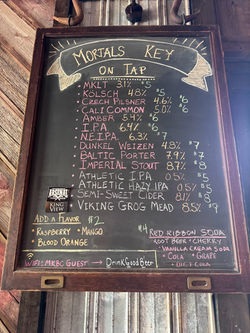 MORTALS KEY
ON TAP
MKLT 3.1% $5
KÖLSCH 4.8% $5
CZECH PILSNER 4.6% $5
CALI COMMON 5.0% $6
AMBER 5.4% $6
I.P.A 6.4%
N.E.I.P.A 6.3% $7
DUNKEL WEIZEN 4.8% $7
BALTIC PORTER 7.9% $7
IMPERIAL STOUT 8.7% $8
ATHLETIC IPA 0.5%
ATHLETIC HAZY IPA 0.5% $5
SEMI-SWEET CIDER 8.1% $8
VIKING GROG MEAD 8.5% $9
ADD A FLAVOR $2
RASPBERRY • MANGO
BLOOD ORANGE
RED RIBBON SODA
ROOT BEER • CHERRY
VANILLA CREAM SODA
• COLA • GRAPE
• DIET COLA
WIFI: MKBC GUEST → DRINKGOODBEER